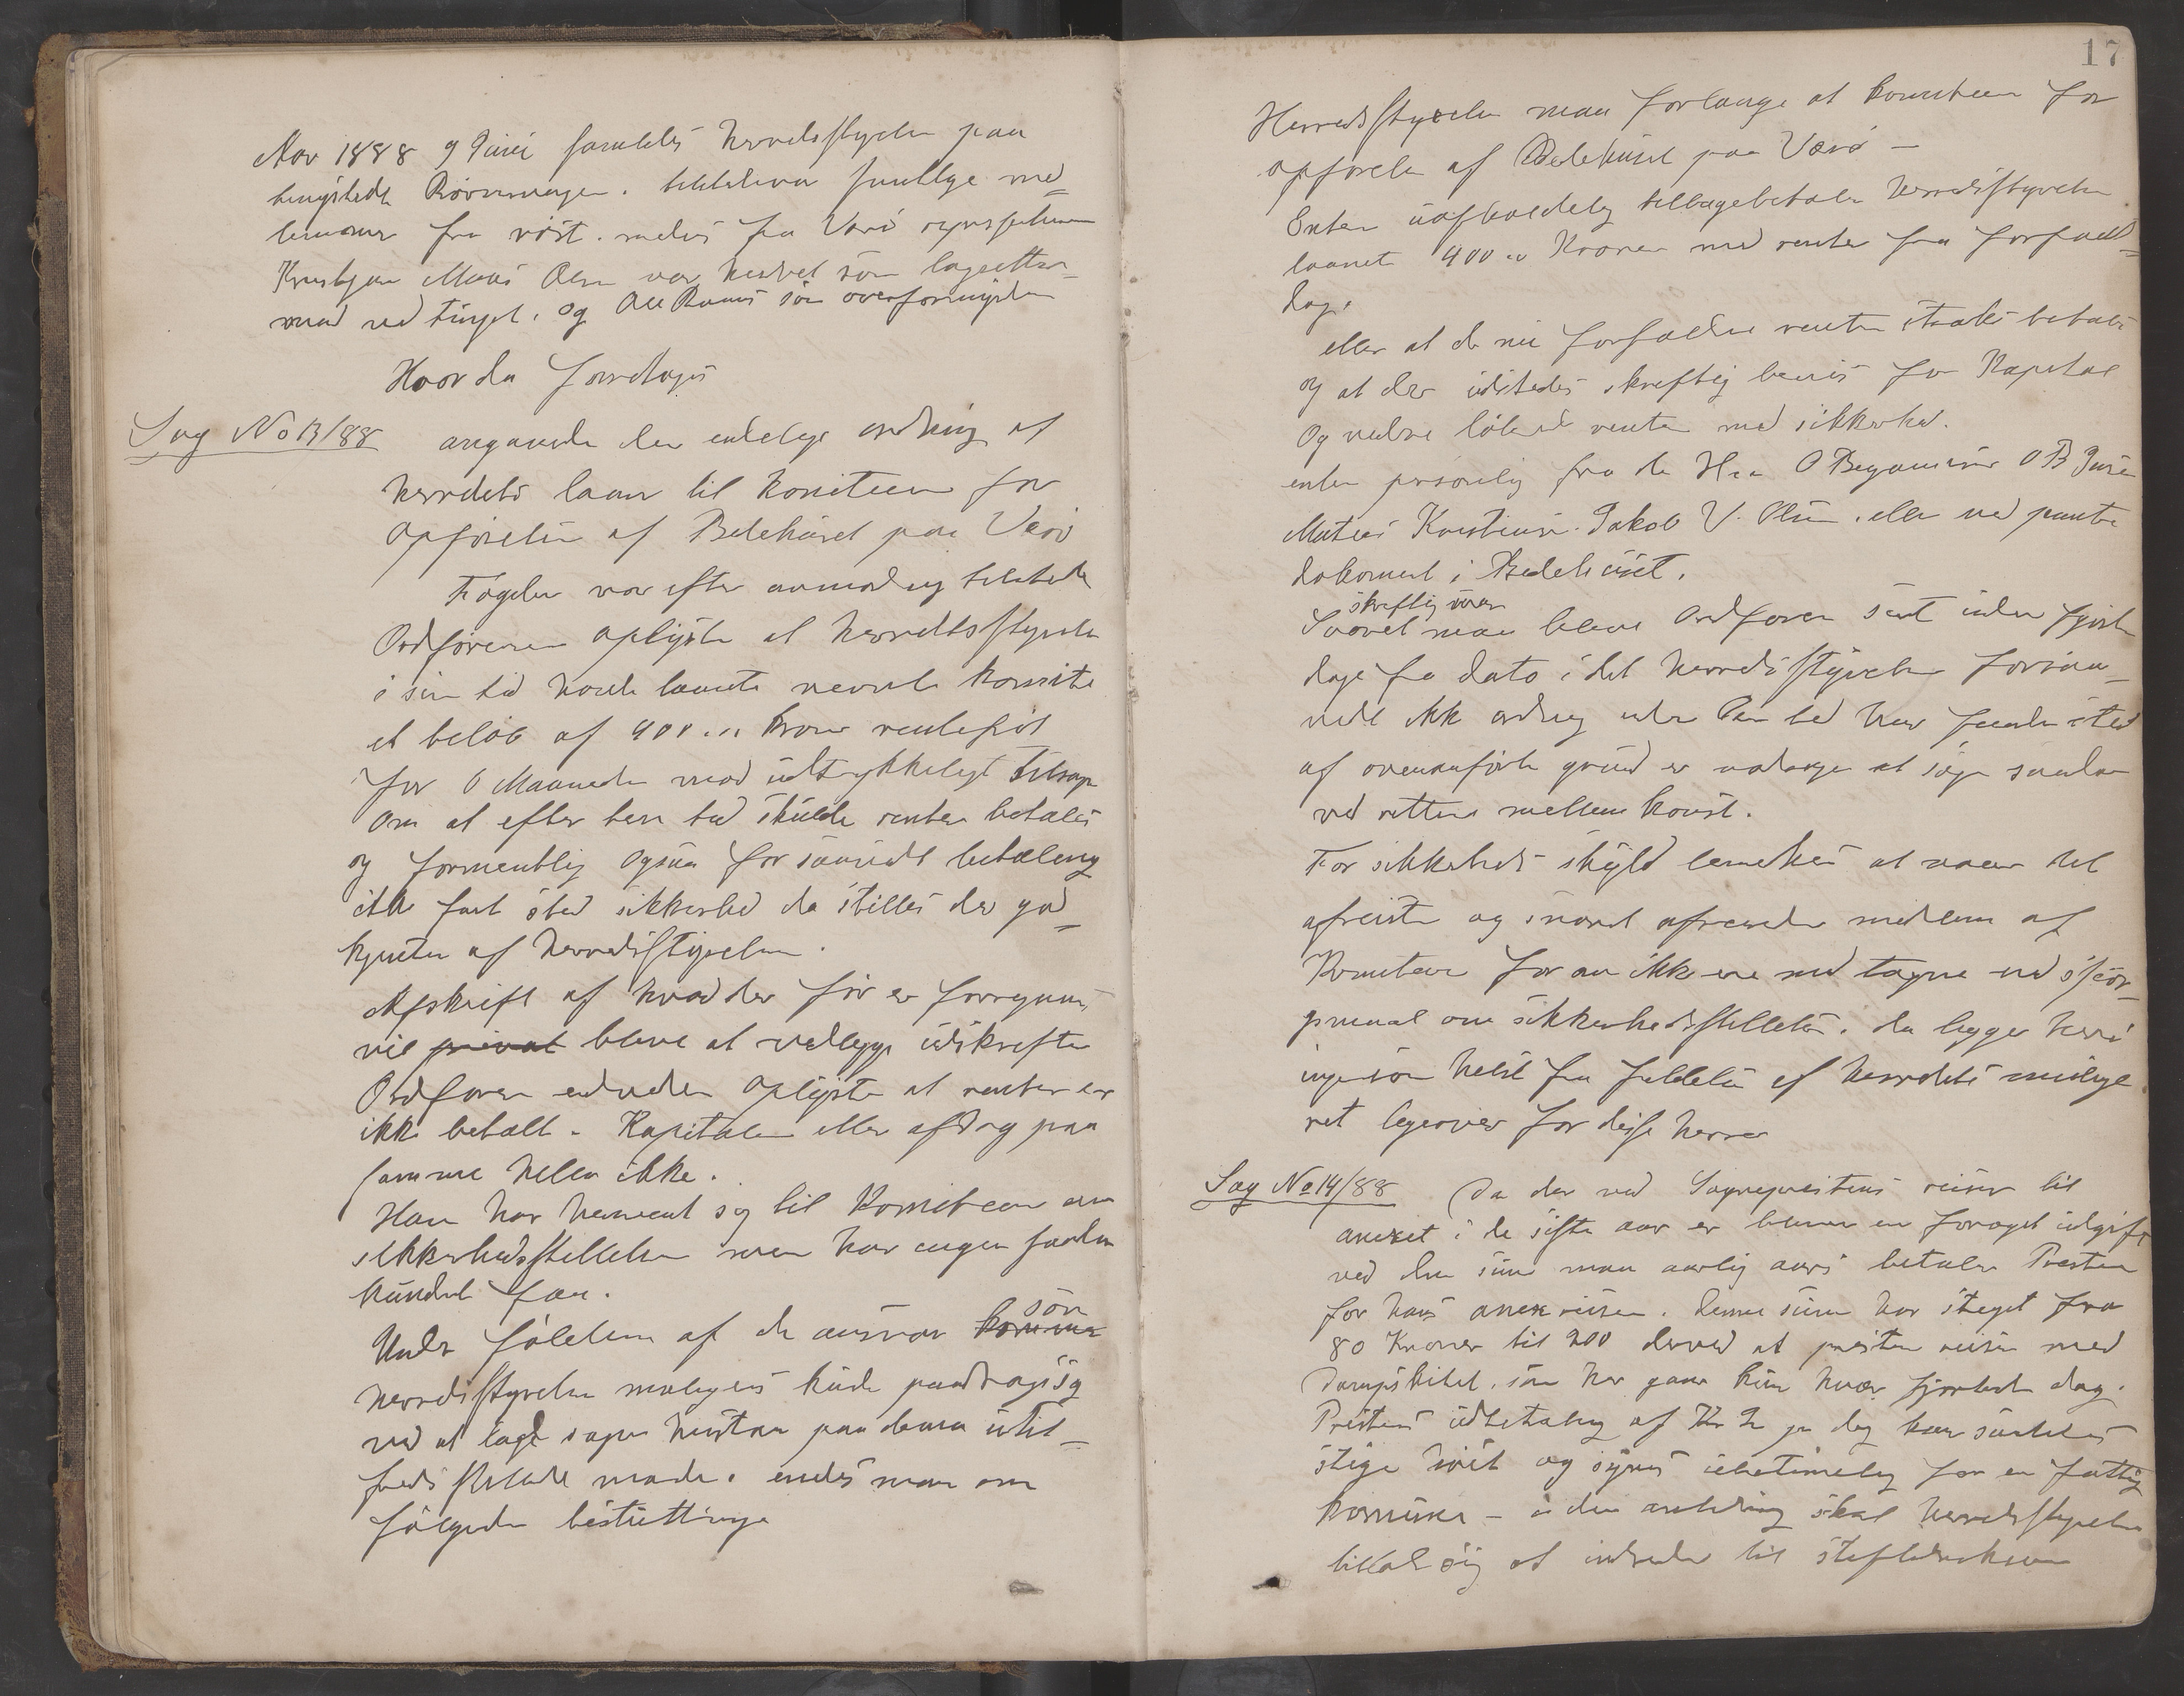 Aar 1888 9 Juni samledes Herredsstyrelsen paa
tingstedet . tilstede var samtlige med=
lemmer fra röst. medens fra Værö
Kristjan Olsen var hindret som lagrettes=
mand ved tinget. og Ole som overformynder
Hvor da foretoges
Sag No 13/88 angaaende den endelige ordning af
herredets laan til komiteen for
Opförelsen af Bedehuset paa Værö
Fogden var efter anmodning tilstede
Ordföreren oplyste at herredsstyrelsen
i sin tid havde laant nævnte komite
et belöb af 400 .,, kroner rentefrit
for 6 Maaneder mod udtrykkeligt tilsagn
om at efter den tid skulde renter betales
og formentlig ogsaa forsaavidt betaling
ikke fant sted sikkerhed da stilles der god=
kjentes af herredsstyrelsen.
Afskrift af hvad der för er foregaaet
vil privat blive at vedlegge udskriften
Ordföreren endvidere oplyste at renter er
ikke betalt - Kapitalen eller afdrag paa
samme heller ikke.
Han har henvent sig til Komiteen om
sikkerhedsstillelse men har ingen saadan
kundet faa.
Under fölelsen af de ansvar komme som
herredsstyrelsen muligens kunde paadrage sig
ved at lade sagen henstaa paa denne util=
fredsstillende maade. enedes man om
fölgende beslutninger
17
Herredsstyrelsen maa forlange at komiteen for
opförelsen af Bedehuset paa Værö –
Enten uopholdelig tilbagebetaler herredsstyrelsen
laanet 400 ,, Kroner med renter fra forfalds=
dag.
eller at de nu forfaldne renter straks betales
og at der udstedes skriftlig bevis for Kapital
og videre löbende renter med sikkerhed.
enten personlig fra de Hrr O Benjaminsen O B
Mateas Kristiansen. Jakob V. Olsen. eller ved pante
dokument i Bedehuset.
skriftlig
Svaret maa blive Ordföreren sent inden fjorten
dage fra dato i det herredsstyrelsen forsaa=
vidt ikke ordning inden den tid har funden sted
af ovenanförte grund er nödsaget at söge saadan
ved rettens mellemkomst.
For sikkerheds skyld bemerkes at naar det
afreiste og snarest afreisende medlem af
Komiteen foran ikke ere med tagne ved spör=
gsmaal om sikkerhedsstillelse. da ligger heri
ingensom helst fra af herredets mulige
ret ligeover for disse herrer
Sag No 14/88 Da der ved Sognepræstens reiser til
anexet i de siste aar er bleven en foröget udgift
ved den sum man aarlig aars betaler Presten
for hans anexreiser. denne sum har steget fra
80 Kroner til 200 derved at presten reiser med
Dampskibet. som her gaar kun hver fjortende dag.
Prestens udbetaling af Kr pr dag kan saaledes
stige höit og synes ubetimelig for en fattig
komune – i den anledning skal herredsstyrelsen
tillade sig at indsende til stiftsdireksion